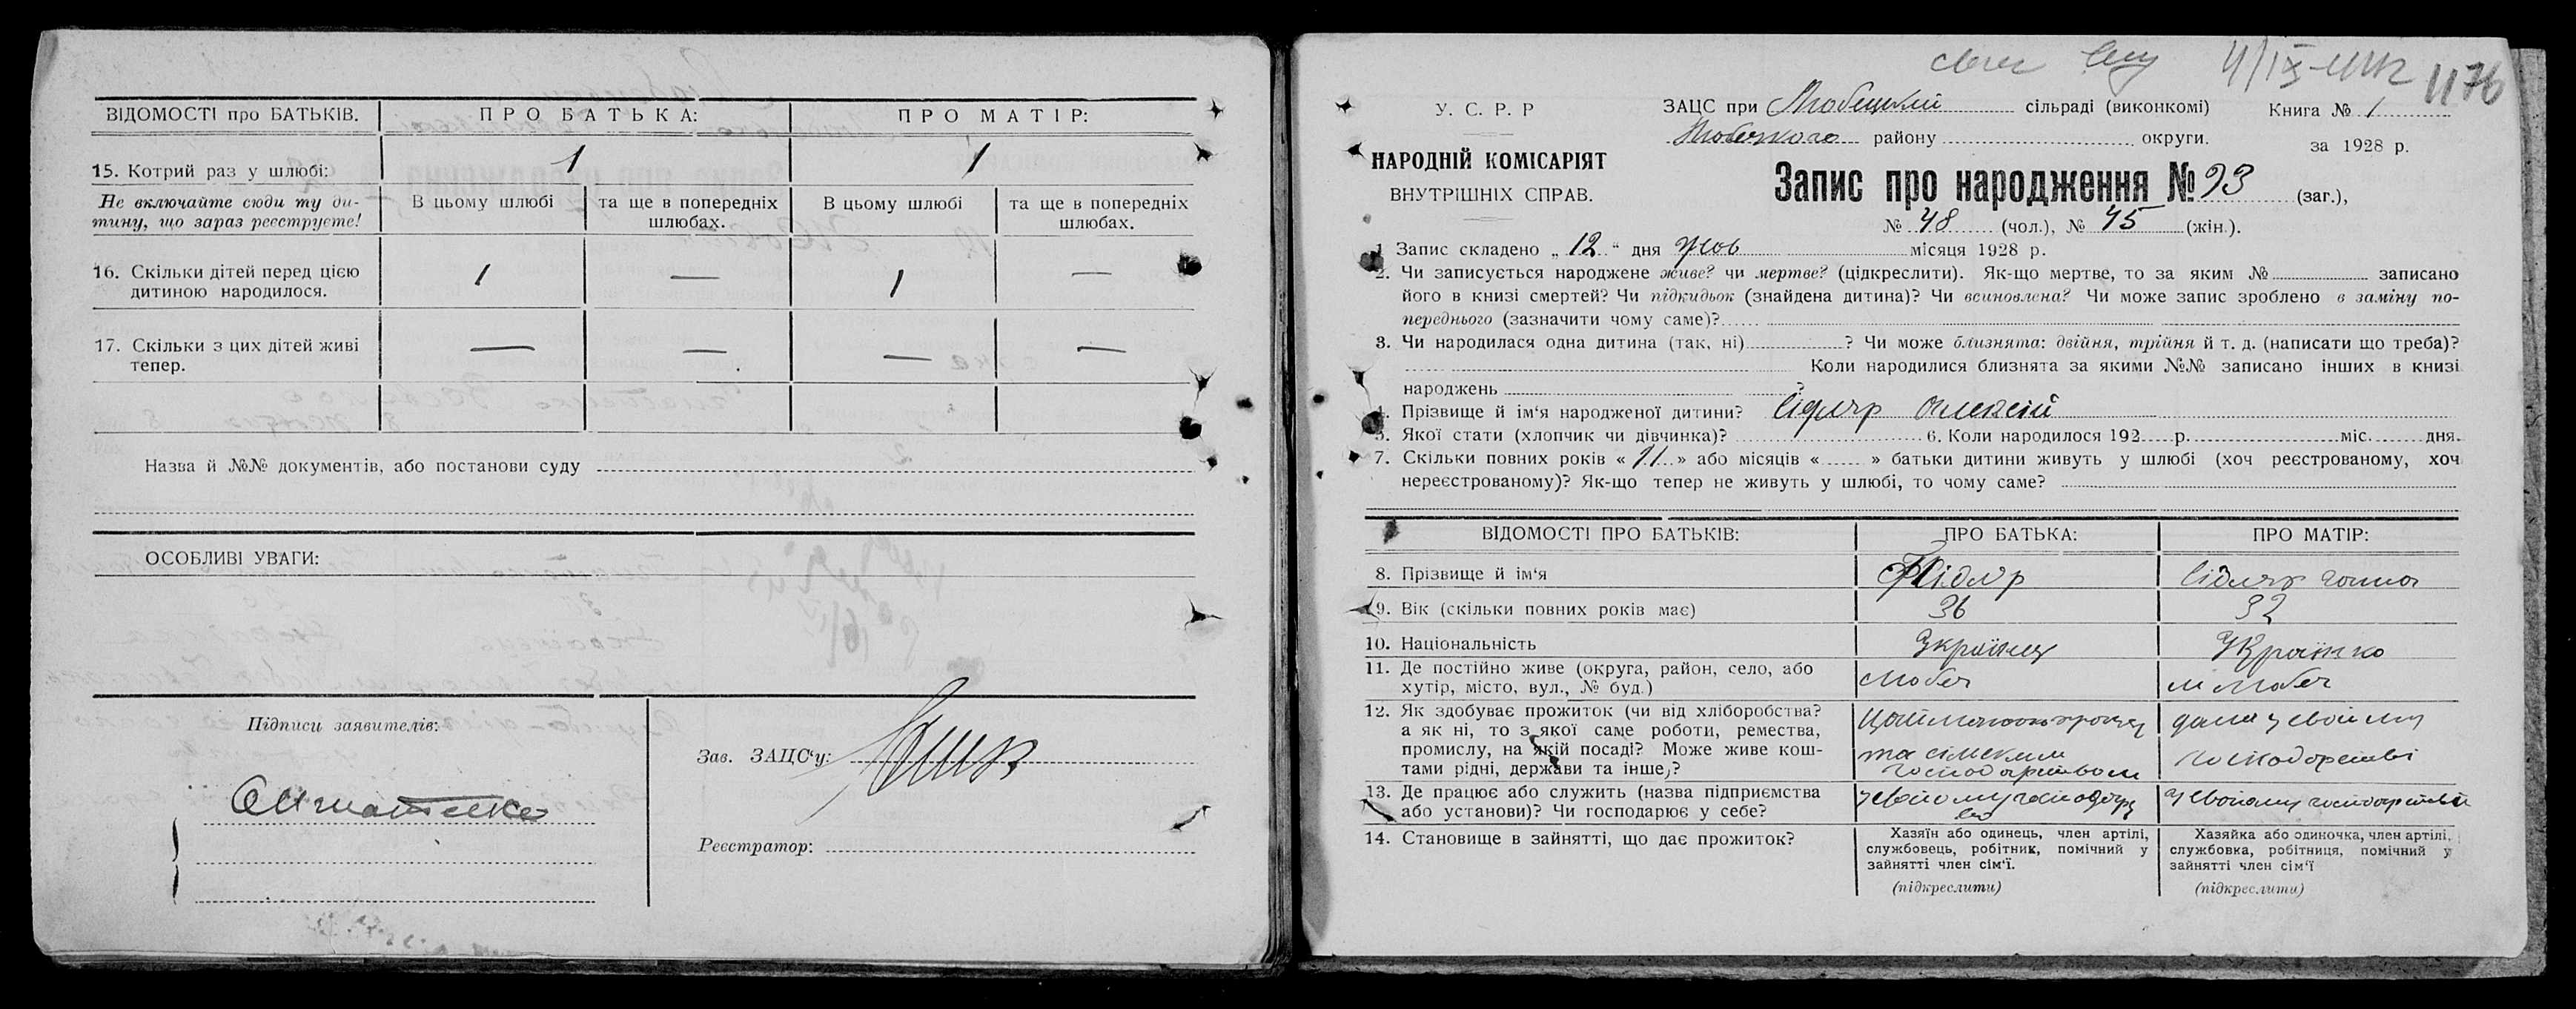 ВІДОМОСТІ про БАТЬКІВ. ПРО БАТЬКА: ПРО МАТІР:
15. Котрий раз у шлюбі: 1 1
Не включайте сюди ту ди-
тину, що зараз реєструєте!
В цьому шлюбі
та ще в попередніх
шлюбах.
В цьому шлюбі
та ще в попередніх
шлюбах.
16. Скільки дітей перед цією
дитиною народилося.
1 — 1 —
17. Скільки з цих дітей живі
тепер.
— — — —
Назва й №№ документів, або постанови суду
ОСОБЛИВІ УВАГИ:
Підписи заявителів:
Зав. ЗАЦС‘у:
Реєстратор:
1176
У. С. Р. Р
НАРОДНІЙ КОМІСАРІЯТ
ВНУТРІШНІХ СПРАВ.
ЗАЦС при Любецькій сільраді (виконкомі)
Любецкого району округи.
Книга № 1
за 1928 р.
Запис про народження № 93 (заг.),
№ 48 (чол.), № 45 (жін.).
1. Запис складено „ 12 “ дня жов місяця 1928 р.
2. Чи записується народжене живе? чи мертве? (підкреслити). Як-що мертве, то за яким № записано
його в книзі смертей? Чи підкидьок (знайдена дитина)? Чи всиновлена? Чи може запис зроблено в заміну по-
переднього (зазначити чому саме)?
3. Чи народилася одна дитина (так, ні) ? Чи може близнята: двійня, трійня й т. д. (написати що треба)?
Коли народилися близнята за якими №№ записано інших в книзі
народжень
4. Прізвище й ім‘я народженої дитини? Сідляр Олексій
5. Якої стати (хлопчик чи дівчинка)? 6. Коли народилося 192 р. міс. дня.
7. Скільки повних років « 11 » або місяців « » батьки дитини живуть у шлюбі (хоч реєстрованому, хоч
нереєстрованому)? Як-що тепер не живуть у шлюбі, то чому саме?
ВІДОМОСТІ ПРО БАТЬКІВ: ПРО БАТЬКА: ПРО МАТІР:
8. Прізвище й ім‘я Сідляр Ганна
9. Вік (скільки повних років має) 36 32
10. Національність Українец Українко
11. Де постійно живе (округа, район, село, або
хутір, місто, вул., № буд.)
Любеч м Любеч
12. Як здобуває прожиток (чи від хліборобства?
а як ні, то з якої саме роботи, ремества,
промислу, на якій посаді? Може живе кош-
тами рідні, держави та інше,?
та сільским
господарством
дома у своїму
господорстві
13. Де працює або служить (назва підприємства
або установи)? Чи господарює у себе?
у своїому господар
у своїому господорстві
14. Становище в зайнятті, що дає прожиток?
Хазяїн або одинець, член артілі,
службовець, робітник, помічний у
зайнятті член сім‘ї.
(підкреслити)
Хазяйка або одиночка, член артілі.
службовка, робітниця, помічний у
зайнятті член сім‘ї
(підкреслити)